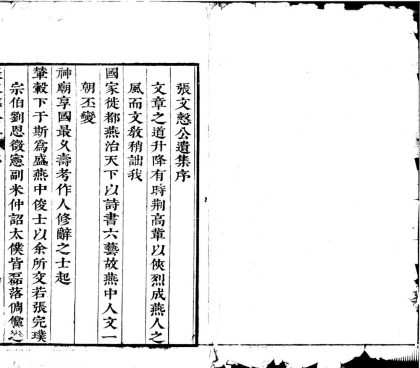 張文慤公遺集序
文章之道升降有時荆高軰以俠烈成燕人之
風而文敎稍詘我
國家徙都燕治天下以詩書六藝故燕中人文一
朝丕變
神廟享國最久壽考作人修辭之士起
輦轂下于斯為盛燕中俊士以余所交若張完璞
宗伯劉恩徵憲副米仲詔太僕皆磊落倜儻之